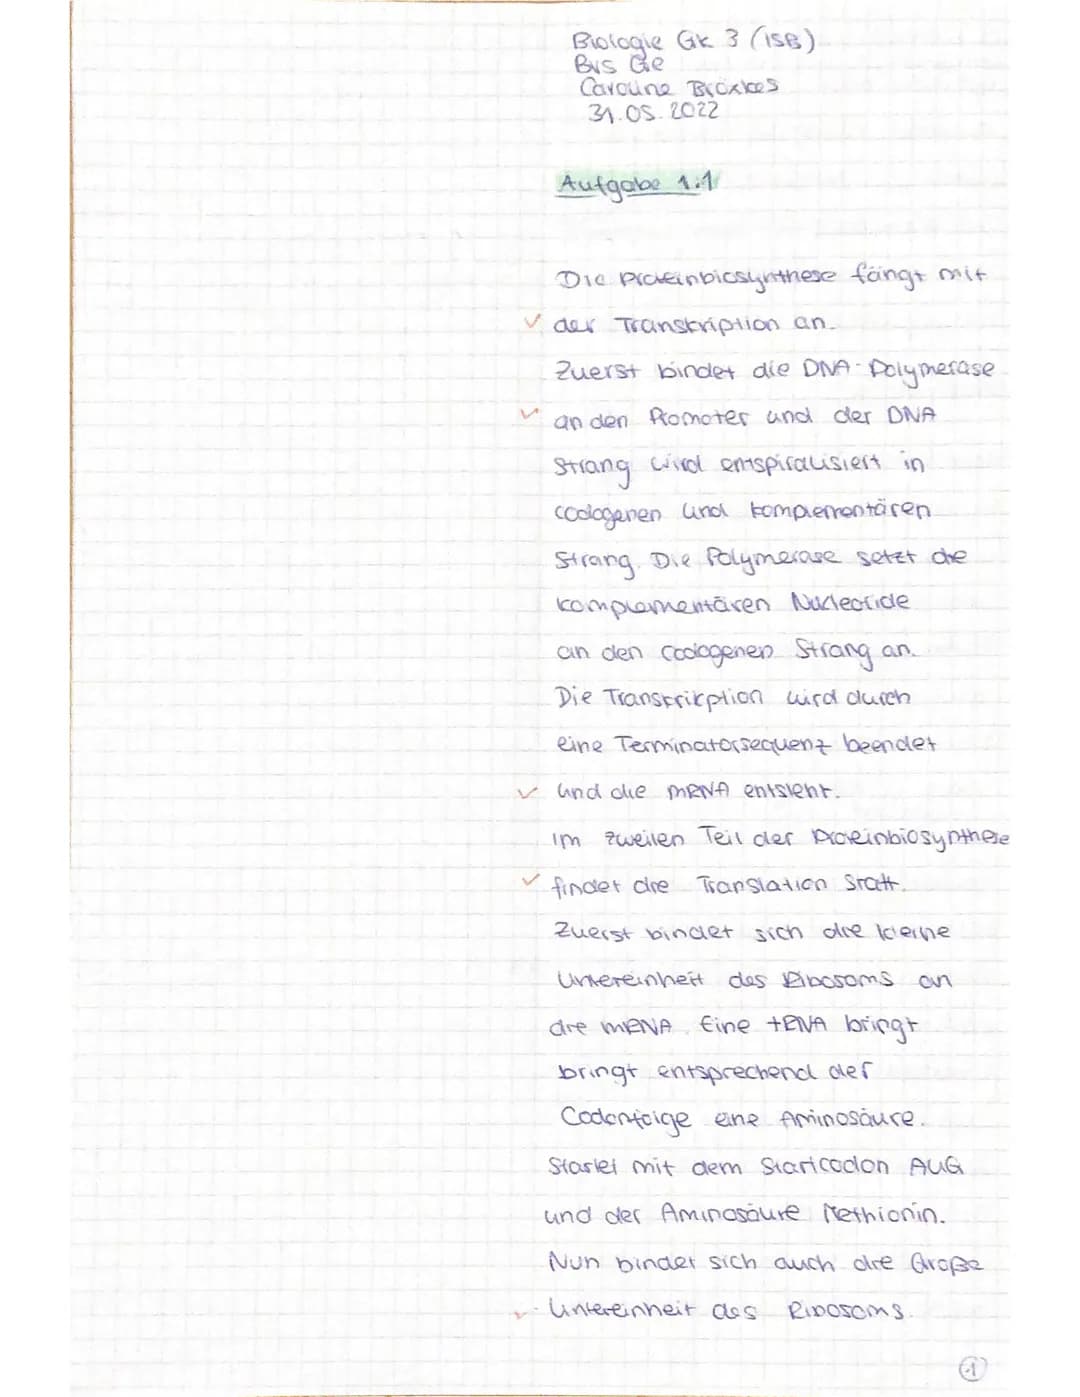 Biologie GK 3 (ISB)
Bus Ge
Caroline
31.05.2022
Aufgabe 1.1
Die Proteinbiosynthese fängt mit
der Transkription an.
Zuerst bindet die DNA-Polymerase
an den Promoter und der DNA
Strang wird entspiralisiert in
codogenen und komplementären
Strang. Die Polymerase setzt die
komplementären Nukleotide
an den codogenen Strang an.
Die Transkrikption wird durch
eine Terminatorsequenz beendet
und die mRNA entsteht.
Im zweiten Teil der Proteinbiosynthese
findet die Translation statt.
Zuerst bindet sich die kleine
Untereinheit des Ribosoms an
die mRNA. Eine tRNA bringt
bringt entsprechend der
Codonfolge eine Aminosäure.
Startet mit dem Startcodon AUG
und der Aminosäure Methionin.
Nun bindet sich auch die Große
Untereinheit des Ribosoms.
1